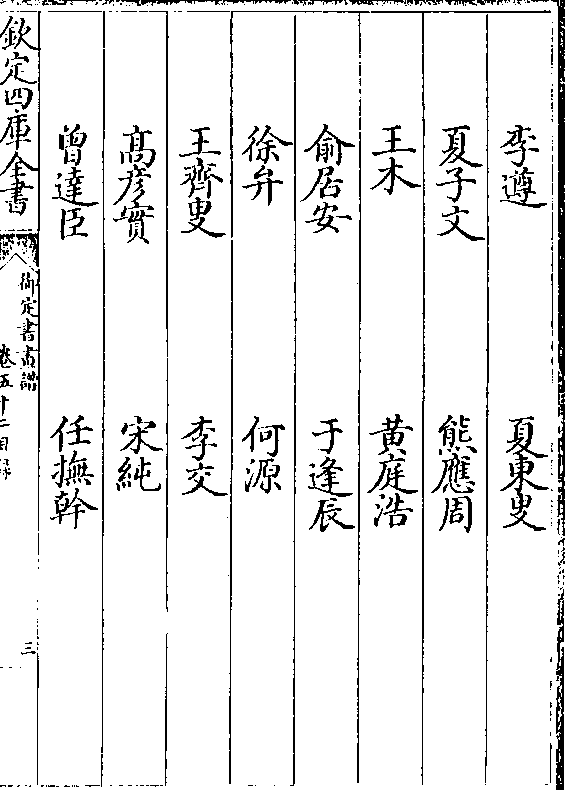 李遵　夏東叟
夏子文　熊應周
王木　黄庭浩
俞居安　于逢辰
徐弁　何源
王齊叟　李交
髙彦實　宋純
曾達臣　任撫幹
欽定四庫全書
御定書畫譜
卷五十二目録
三